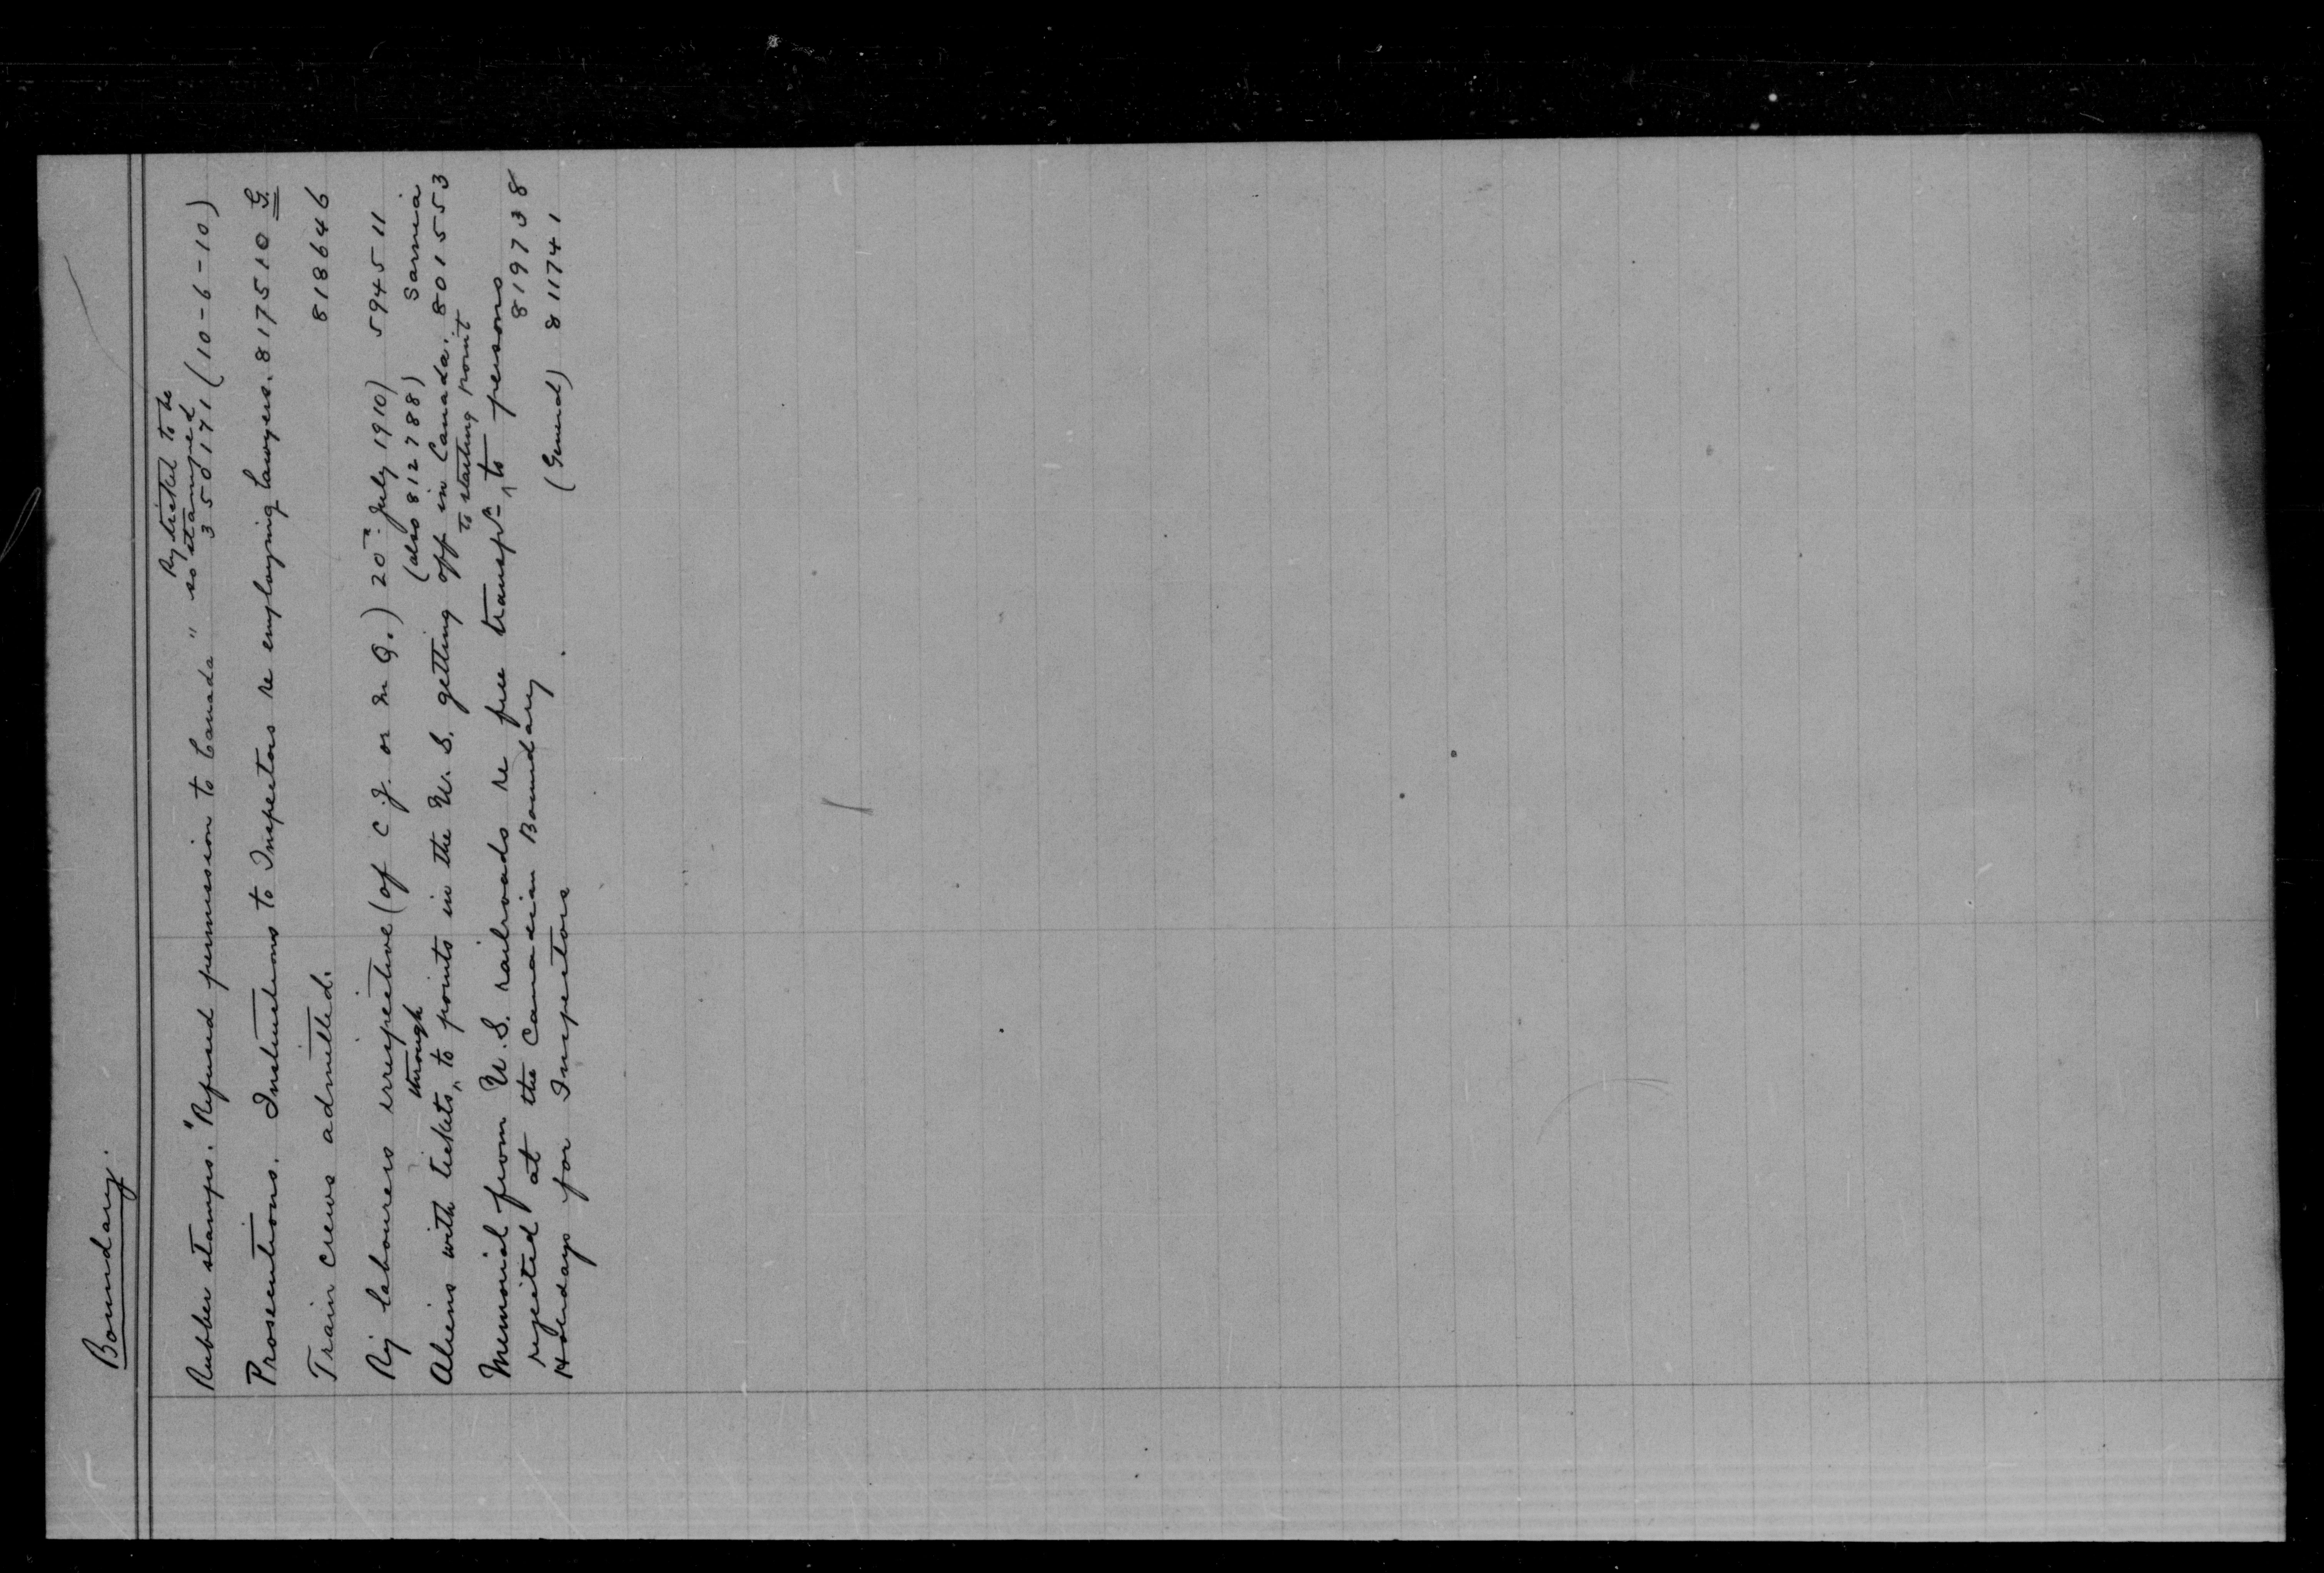 Boundary.
Ry ticket to be
Rubber stamps. "Refused permission to Canada" so stamped
350171 (10-6-10)
Prosecutions. Instructions to Inspectors re employing lawyers. 817510 G.
Train crews admitted. 818646
Ry labourers irrespective (of C.J. or M Q.) 20th July 1910) 594511
(also 812788) Sarnia
Aliens with tickets, through to points in the U.S. getting off in Canada. 801553
to starting point
Memorial from U.S. railroads re free transpn to persons
rejected at the Canadian Boundary 819738
Holidays for Inspectors (General) 811741